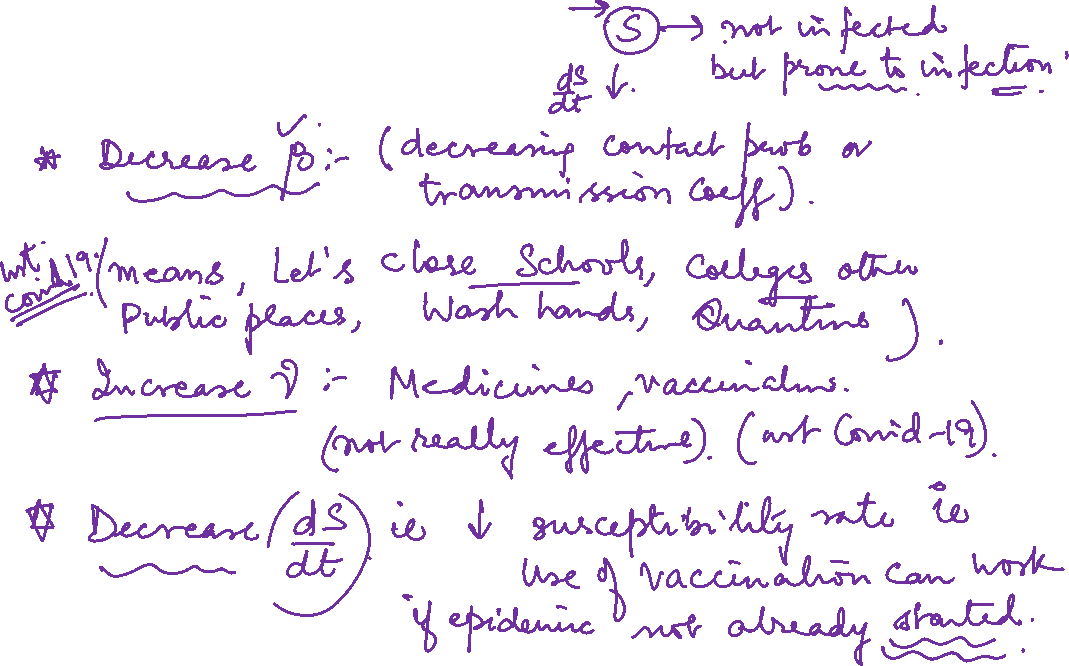 → Ⓢ → not infected
but prone to infection
dS/dt ↓.
* Decrease β :- (decreasing contact prob or
transmission coeff).
wrt covid19. (means, Let's close Schools, Colleges other
Public places, Wash hands, Quantins).
☆ Increase ν :- Medicines, vaccinations.
(not really effective). (wrt Covid-19).
☆ Decrease (dS/dt) ie ↓ susceptibility rate ie
Use of vaccination can work
if epidemic not already started.